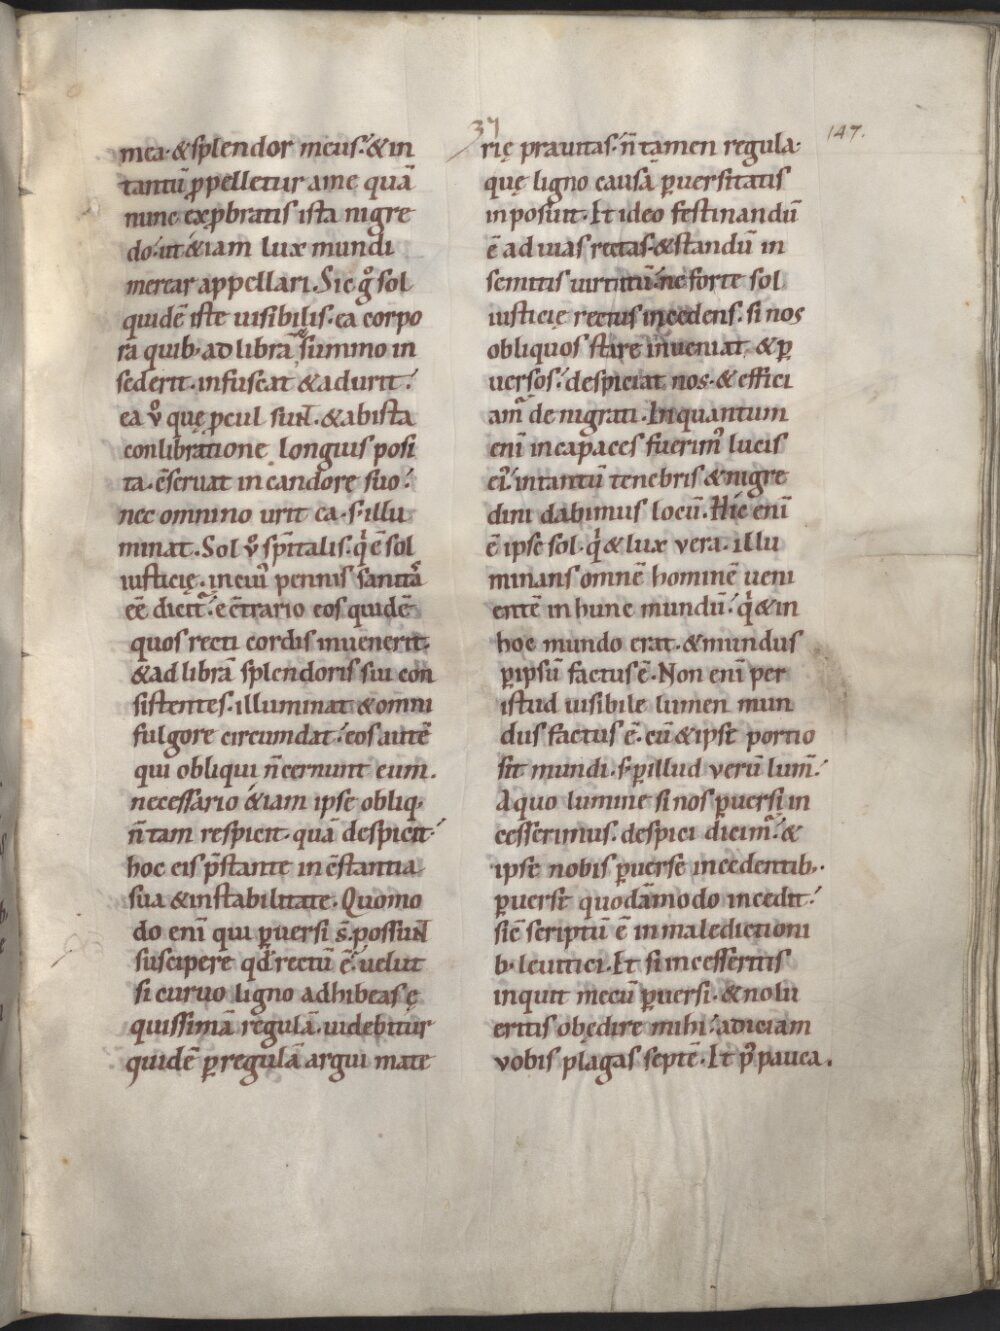 37
147.
mea·&splendor meus·́&in
tantū ꝓpelletur ame quā
nunc exꝓbratis ista nigre
do·́ut &iam lux mundi
merear appellari. Sic gͦ sol
quidē iste uisibilis·ea corpo
ra quib· ad librā summo in
sederit· infuscat &adurit·́
ea ůͦ quę ꝓcul sunt·&abista
conlibratione longius posi
ta·c̄seruat in candore suo·́
nec omnino urit ea·s;illu
minat. Sol ůͦ sp̄italis·q̇ ē sol
iusticię·incui᷒ pennis sanitā
eē dicit᷑·́ e c̄trario eos quidē
quos recti cordis inuenerit·
&ad librā splendoris sui con
sistentes· illuminat &omni
fulgore circumdat·́ eos autē
qui obliqui n̄ cernunt eum.
necessario &iam ipse obliq;
n̄ tam respicit· quā despicit·́
hoc eis p̄stante in c̄stantia
sua &instabilitate. Quomo
do eni᷑ qui ꝑuersi s̄·possunt
suscipere qd̄ rectū ē·́ uelut
si curuo ligno adhibeas ę
quissimā regulā·uidebitur
quidē ꝑ regulā argui mate
rię prauitas·́ n̄ tamen regula·
quę ligno causā ꝑuersitatis
inposuit· Et ideo festinandū
ē ad uias rectas·&standū in
semitis uirtutū·́ ne forte sol
iusticię rectus incedens· si nos
obliquos stare inueniat &ꝑ
uersos·́ despiciat nos·& effici
am᷑ de nigrati· Inquantum
enī incapaces fuerim᷒ lucis
ei᷒·́ intantū tenebris &nigre
dini dabimus locū. Hic enī
ē ipse sol·q̇ & lux vera·illu
minans omnē hominē ueni
entē in hunc mundū·́ q̇ &in
hoc mundo erat·&mundus
ꝑipsū factus ē. Non enī per
istud uisibile lumen mun
dus factus ē·cū &ipsē portio
sit mundi·s; ꝑ illud verū lum̄·́
A quo lumine si nos ꝑuersi in
cesserimus· despici dicim᷑·́ &
ipse nobis ꝑuerse incedentib;·
ꝑuerse quodāmodo incedit·́
sic scriptū ē in maledictioni
b· leuitici· Et si incesseritis
inquit mecū ꝑuersi·&nolu
eritis obędire mihi·́ adiciam
vobis plagas septē· Et p᷒ pauca.